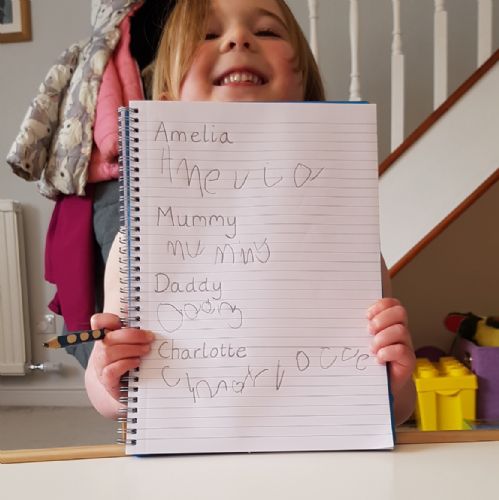 Amelia
Amelia
Mummy
Mummy
Daddy
Daddy
Charlotte